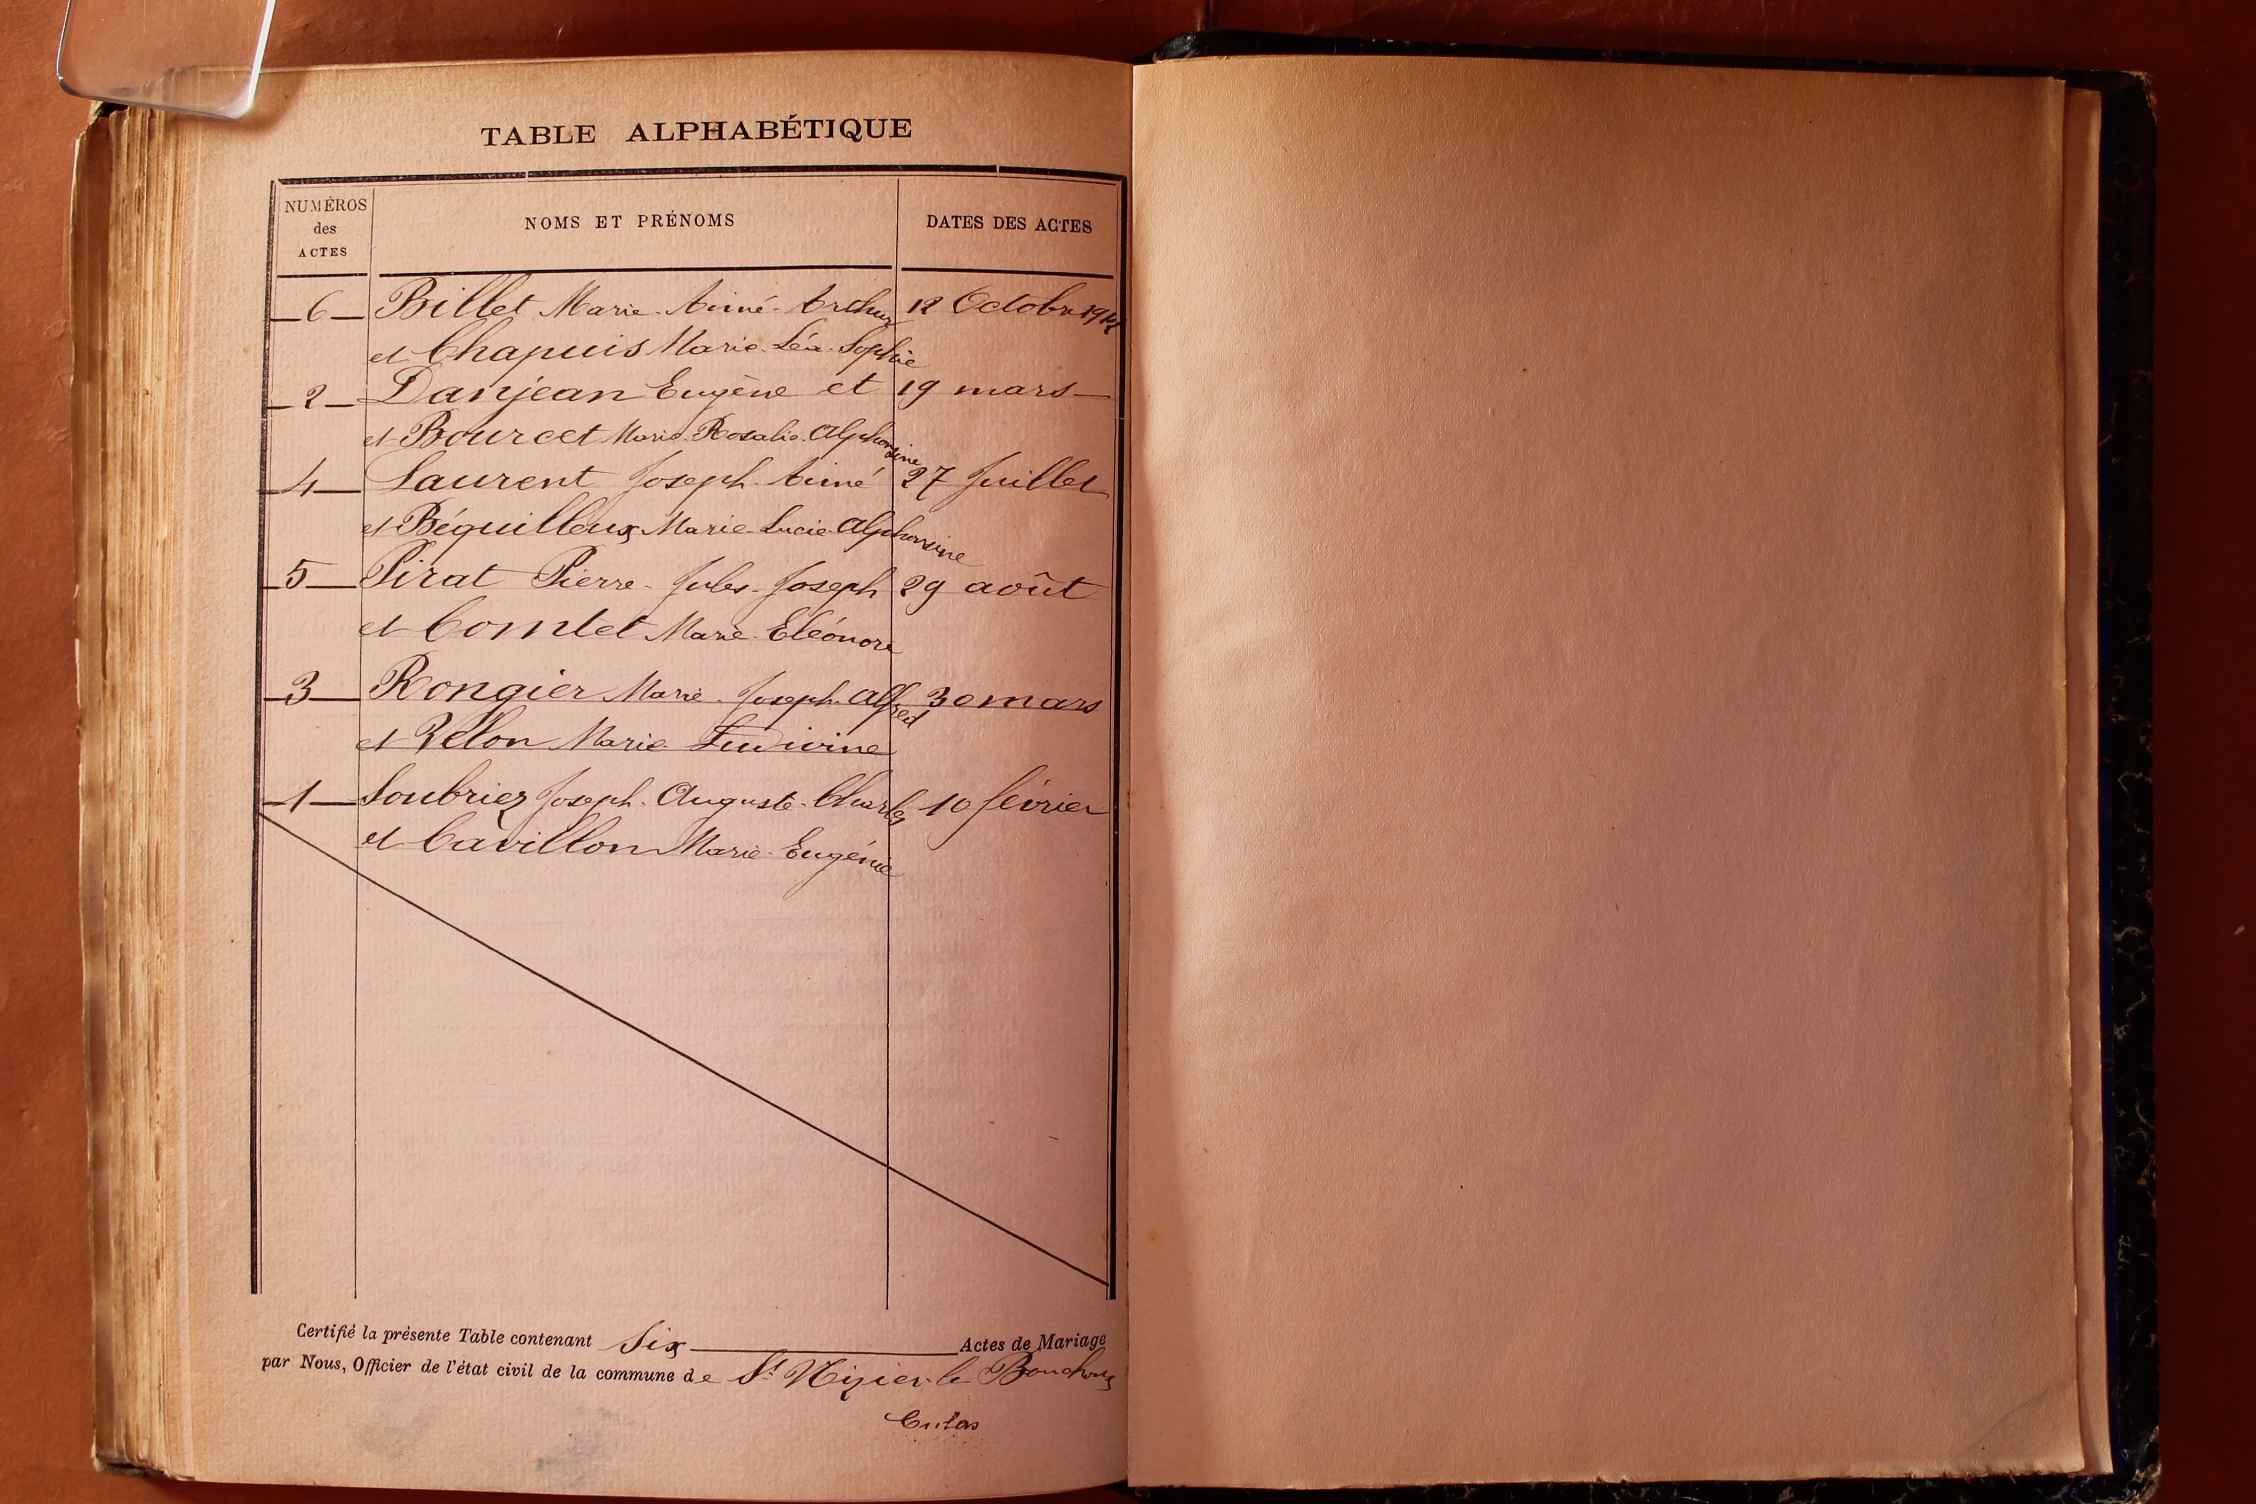 TABLE ALPHABÉTIQUE
NUMÉROS
des
ACTES
NOMS ET PRÉNOMS
DATES DES ACTES
6 Billet Marie-Aimé-Arthur 12 Octobre
et Chapuis Marie-Léa-Sophie
2 Danjean Eugène et 19 mars
et Bourcet Marie-Rosalie-Alphonsine
4 Laurent Joseph-Aimé 27 Juillet
et Béguilleux Marie-Lucie-Alphonsine
5 Pirat Pierre-Jules-Joseph 29 août
et Comtet Marie-Eléonore
3 Rongier Marie-Joseph-Alfred 30 mars
et Vellon Marie
1 Soubriez Joseph-Auguste-Charles 10 février
et Cavillon Marie-Eugénie
Certifié la présente Table contenant Six Actes de Mariage
par Nous, Officier de l'état civil de la commune de St Nizier-le Bouchoux